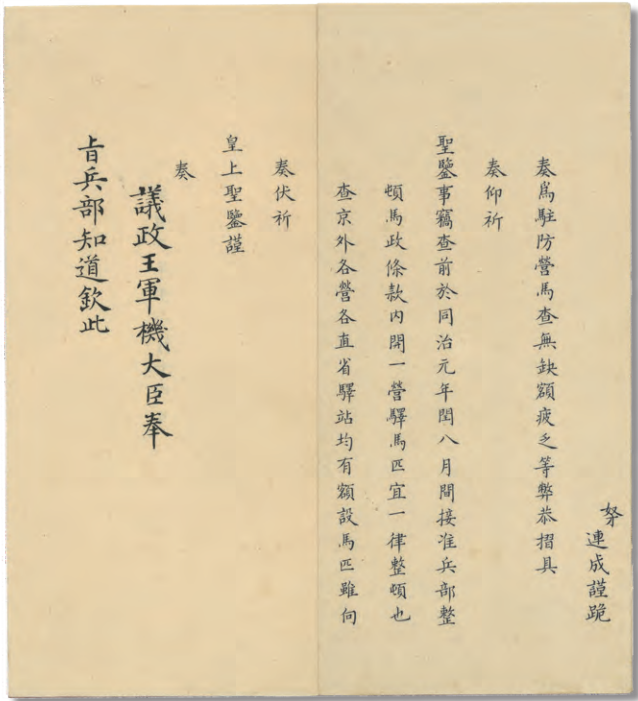 奴才連成謹跪
奏為駐防營馬查無缺額疲乏等弊恭摺具
奏仰祈
聖鑒事竊查前於同治元年閏八月間接准兵部整
頓馬政條款內開一營驛馬匹宜一律整頓也
查京外各營各直省驛站均有額設馬匹雖向
奏伏祈
皇上聖鑒謹
奏
議政王軍機大臣奉
旨兵部知道欽此